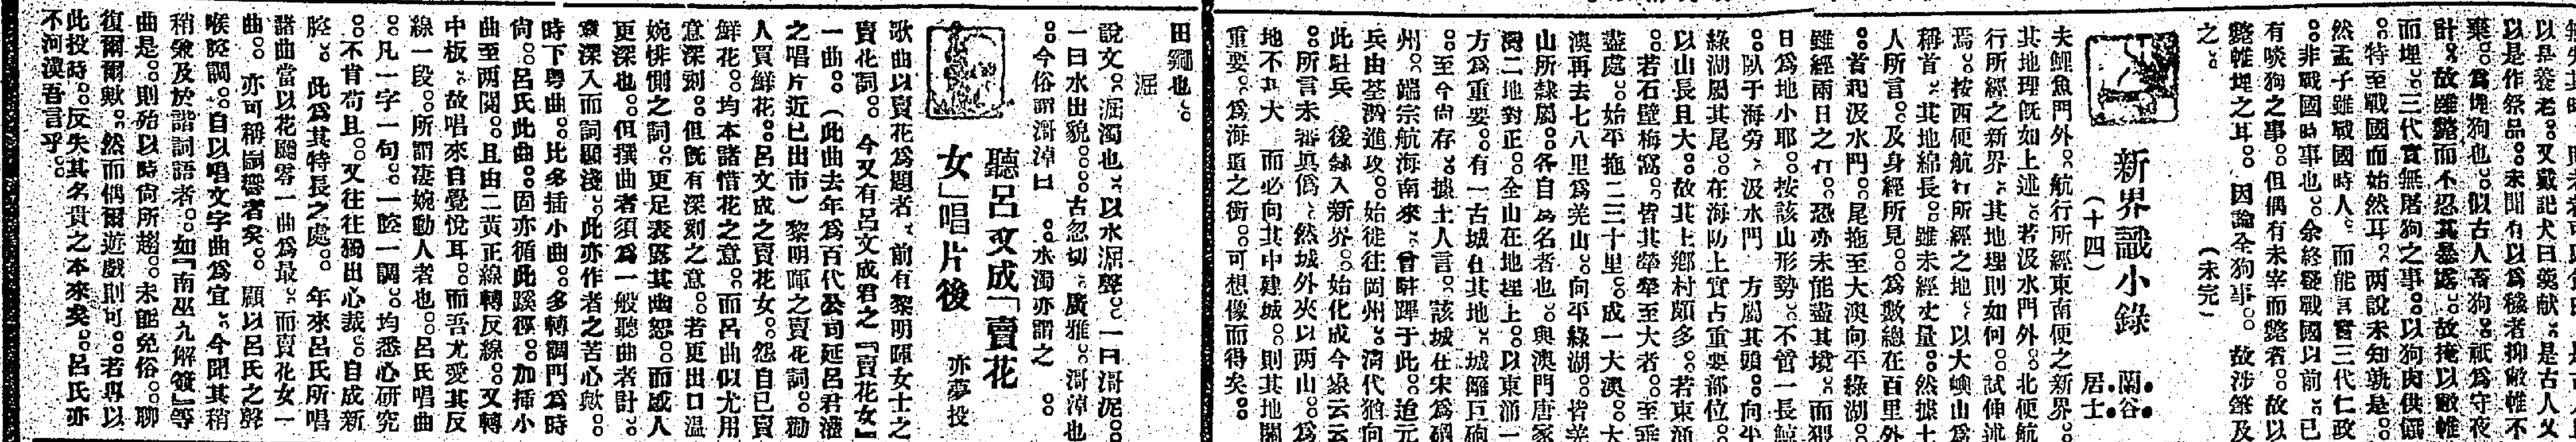 以是養老。又戴記犬曰羹献。是古人又
以是作祭品。未聞有以爲穢者抑敝帷不
棄。爲埋狗也。似古人畜狗。祇爲守夜
計。故雖斃而不忍其暴露。故掩以敝帷
而埋。三代實無屠狗之事。以狗肉供饌
。特至戰國而始然耳。两說未知孰是。
然孟子雖戰國時人。而能言當三代仁政
。非戰國時事也。余終疑戰國以前。已
有啖狗之事。但偶有未宰而斃者。故以
敝帷埋之耳。因論全狗事。故涉筆及
之。（未完）
新界識小錄
（十四）
蘭谷居士
夫鯉魚門外。航行所經東南便之新界。
其地理旣如上述。若汲水門外。北便航
行所經之新界。其地理則如何。試伸述
焉。按西便航行所經之地。以大嶼山爲
稱首。其地綿長。雖未經丈量。然據土
人所言。及身經所見。爲數總在百里外
。首起汲水門。尾拖至大澳向平綠湖。
雖經兩日之行。恐亦未能盡其境。而猥
日爲地小耶。按該山形勢。不啻一長鯨
。臥于海旁。汲水門 方屬其頭。向平
綠湖屬其尾。在海防上實占重要部位。
以山長且大。故其上鄉村頗多。若東涌
。若石壁梅窩。皆其犖犖至大者。至垂
盡處。始平拖二三十里。成一大澳。大
澳再去七八里爲羌山。向平綠湖。皆羌
山所隸屬。各自爲名者也。與澳門唐家
灣二地對正。全山在地理上。以東涌一
方爲重要。有一古城在其地。城雖巨砲
。至今尙存。據土人言。該城在宋爲碙
州。端宗航海南來。曾駐蹕于此。迨元
兵由荃灣進攻。始徙往岡州。淸代猶向
此駐兵 後綠入新界。始化成今綠云云
。所言未審眞僞。然城外夾以两山。爲
地不甚大 而必向其中建城。則其地關
重要。爲海道之衝。可想像而得矣。
田疁也。
淈
說文。淈濁也。以水淈聲。一曰滑泥。
一曰水出貌。古忽切。廣雅。滑淖也
。今俗謂滑淖曰 。水濁亦謂之 。
聽呂文成「賣花
女」唱片後
亦夢投
歌曲以賣花爲題者。前有黎明暉女士之
賣花詞。今又有呂文成君之「賣花女」
一曲。（此曲去年爲百代公司延呂君灌
之唱片近已出市）黎明暉之賣花詞。勸
人買鮮花。呂文成之賣花女。怨自己賣
鮮花。均本諸惜花之意。而呂曲似尤用
意深刻。但旣有深刻之意。若更出口溫
婉悱惻之詞。更足表露其幽怨。而感人
更深也。但撰曲者須爲一般聽曲者計。
意深入而詞顯淺。此亦作者之苦心歟。
時下粤曲。比多插小曲。多轉調門爲時
尙。呂氏此曲。固亦循此蹊徑。加插小
曲至两闋。且由二黃正線轉反線。又轉
中板。故唱來自覺悅耳。而吾尤愛其反
線一段。所謂凄婉動人者也。呂氏唱曲
。凡一字一句。一腔一調。均悉心研究
。不肯苟且。又往往獨出心裁。自成新
腔。此爲其特長之處。年來呂氏所唱
諸曲當以花飄零一曲爲最。而賣花女一
曲。亦可稱嗣響者矣。顧以呂氏之聲
喉腔調。自以唱文字曲爲宜。今聞其稍
稍兼及於諧詞語者。如「南巫九解簽」等
曲是。則殆以時尙所趨。未能免俗。聊
復爾爾歟。然而偶爾遊戲則可。若專以
此投時。反失其名貴之本來矣。呂氏亦
不河漢吾言乎。